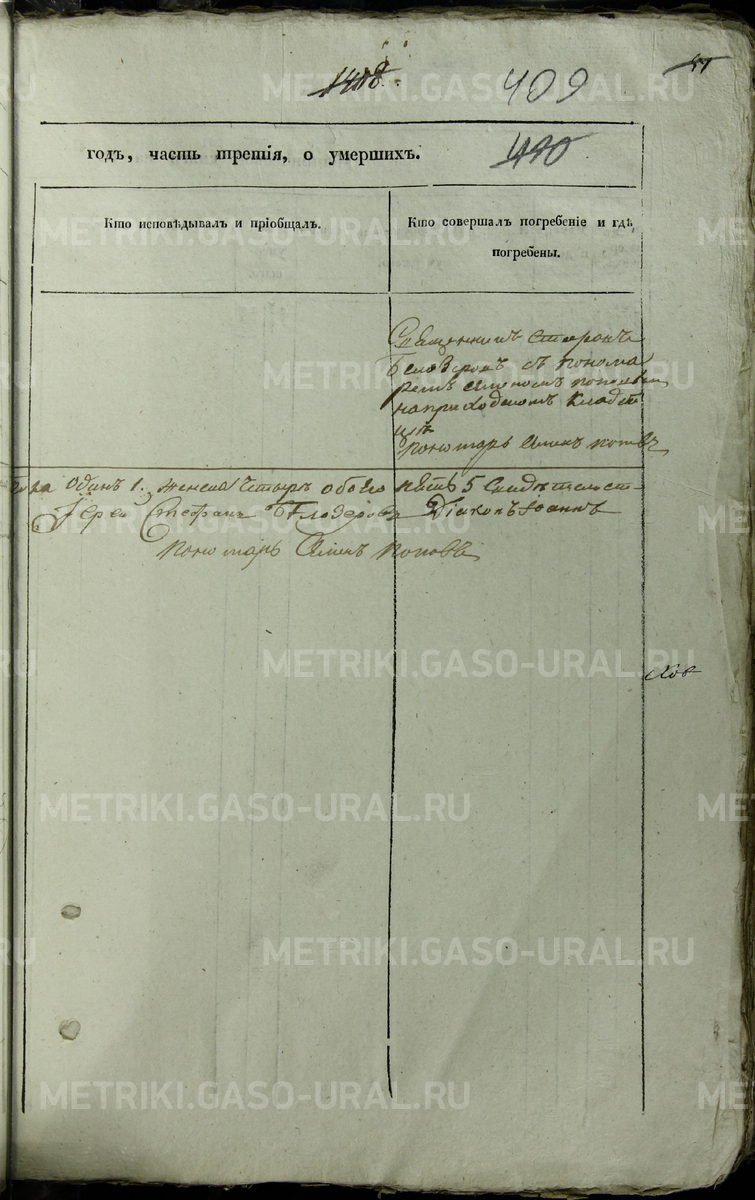 1408.
409
410
годъ, часть третія, о умершихъ.
Кто исповѣдывалъ и пріобщалъ.
Кто совершалъ погребеніе и гдѣ
погребены.
Священникъ Стефанъ
Белозеровъ съ понома
ремъ Симеономъ Поповым
на приходскомъ кладб
ищѣ
Пономарь Симеонъ Поповъ
одинъ 1. женска четыре обоего пять 5 Свидѣтельст
Іерей Стефанъ Бѣлозеровъ Діаконъ Іоаннъ
Пономарь Симеонъ Поповъ
METRIKI.GASO-URAL.RU